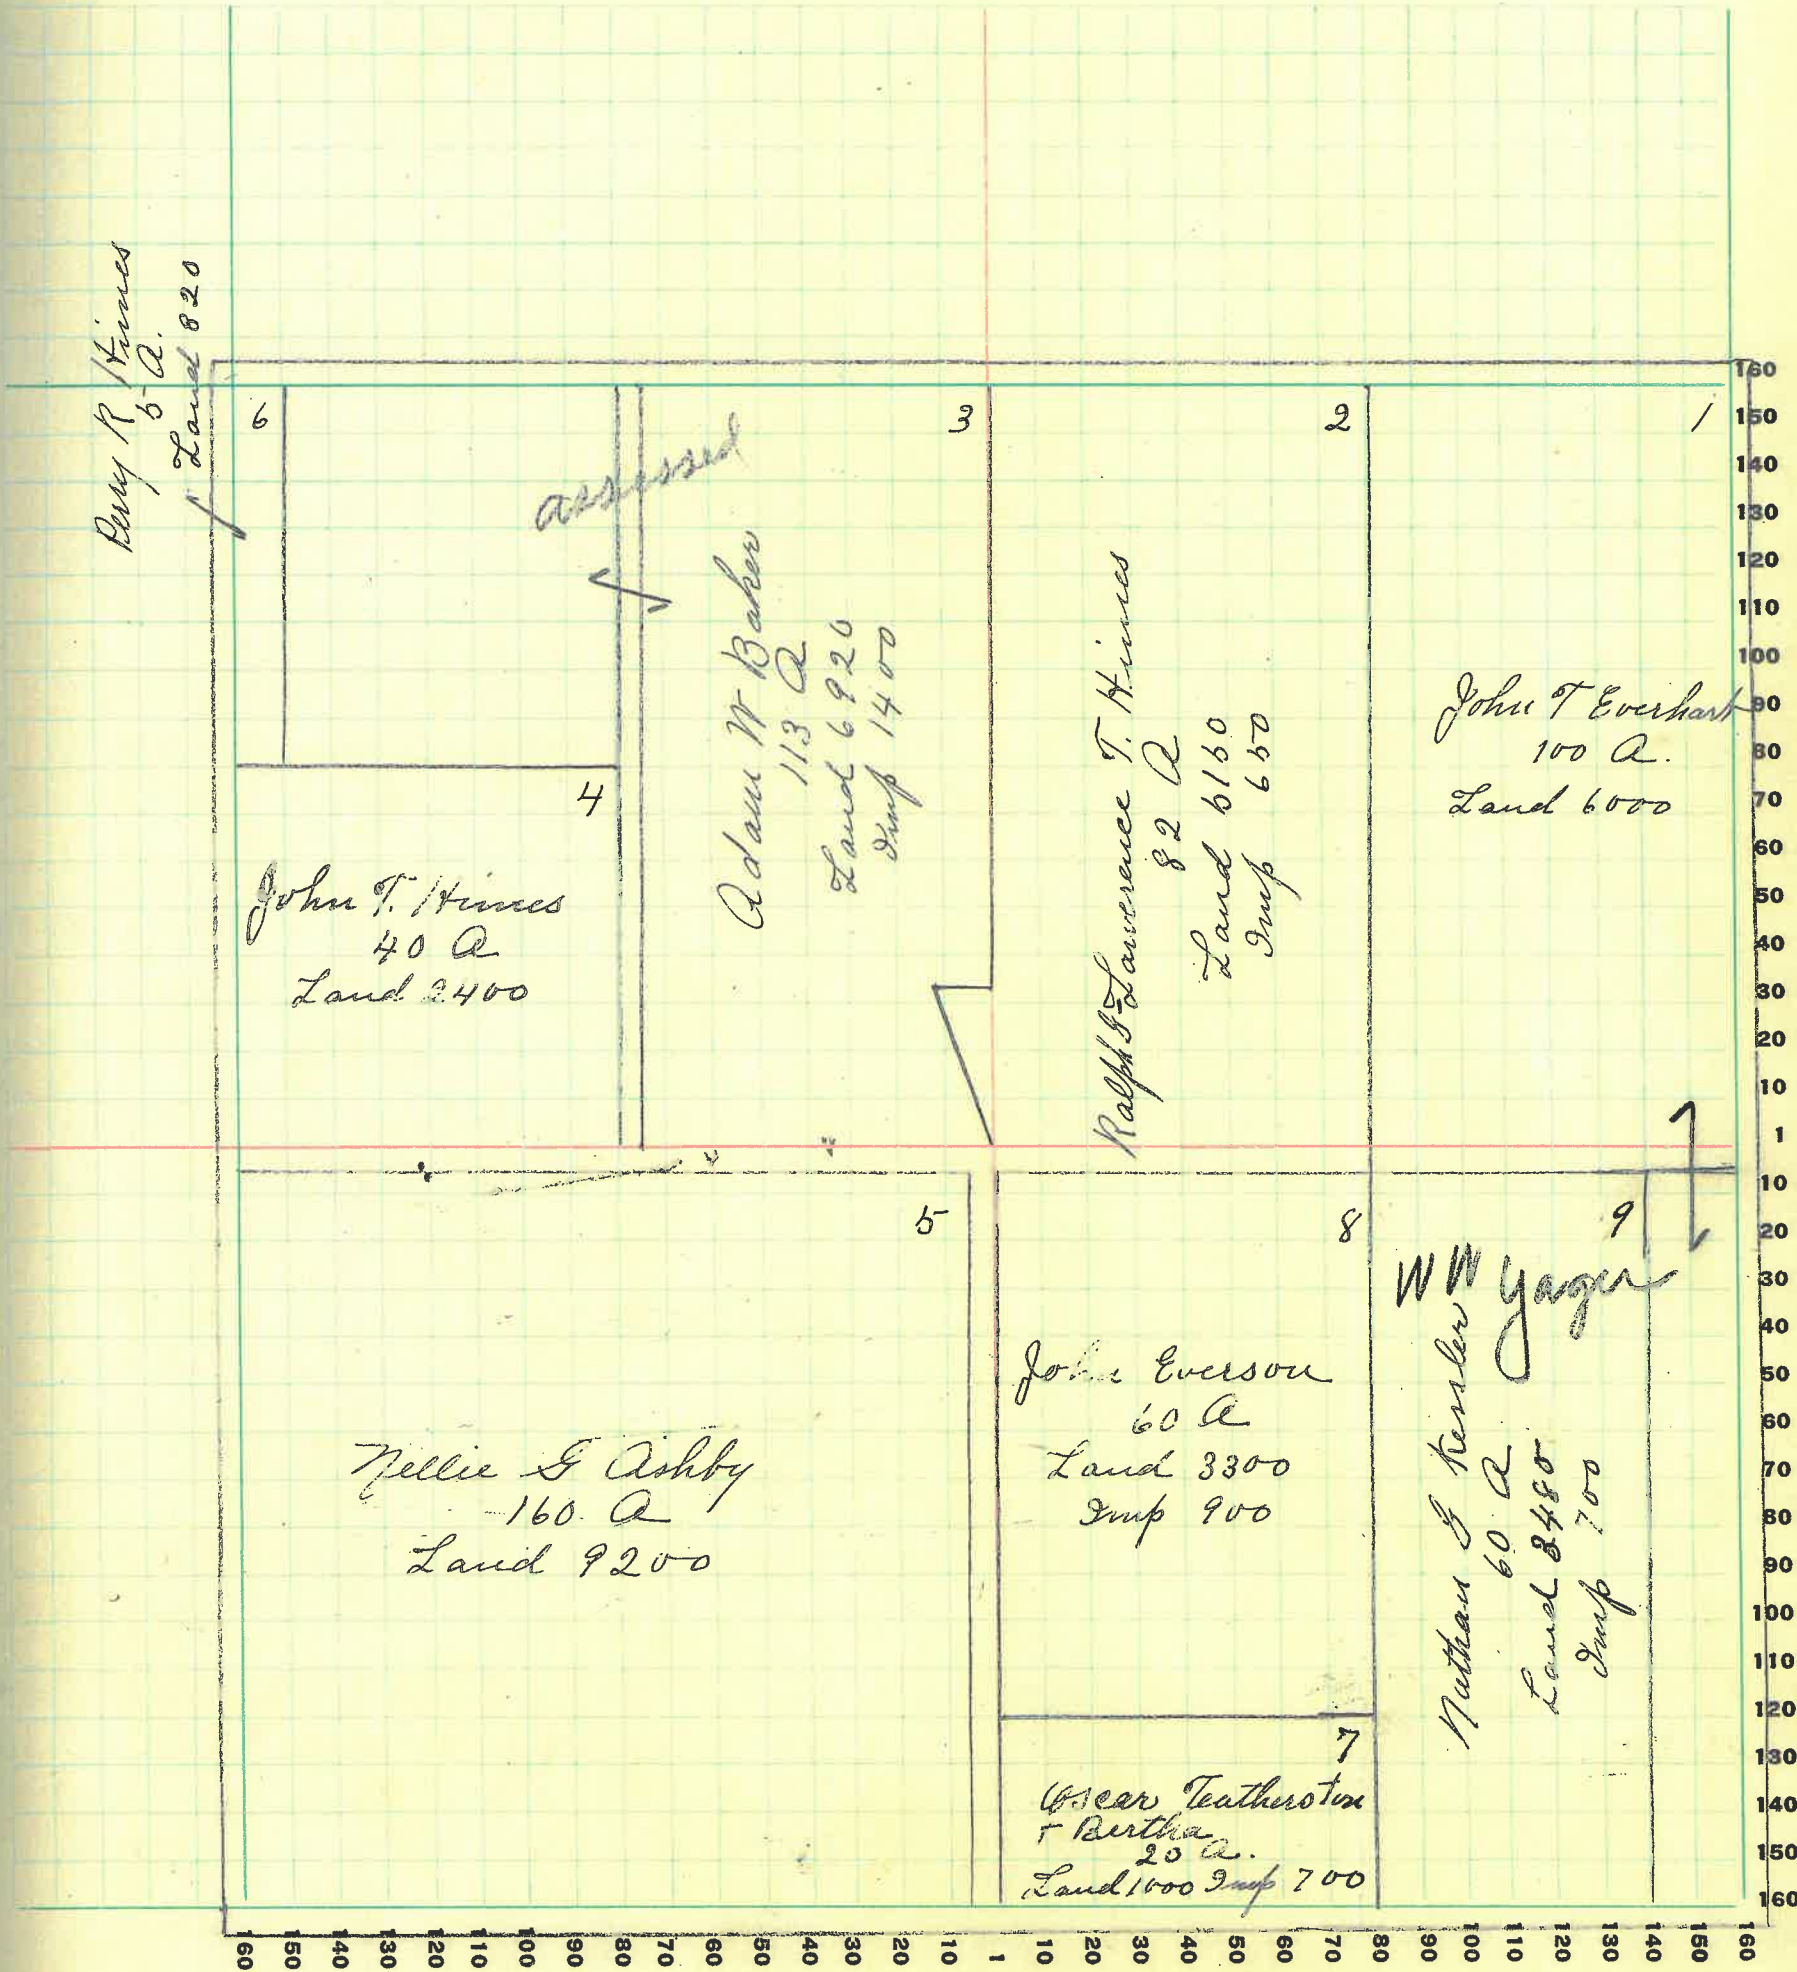 Perry R Himes
5 A.
Land 820
6
3
2
1
assessed
Adam W Baker
113 A
Land 6920
Imp 1400
Ralph & Lawerence T. Himes
82 A
Land 5150
Imp 650
John T Everhart
100 A.
Land 6000
4
John T. Himes
40 A
Land 2400
5
8
9
W W Yager
Nellie G Ashby
160 A
Land 9200
John Everson
60 A
Land 3300
Imp 900
Nathan G Kessler
60 A
Land 3480
Imp 700
7
Oscar Teatherston
+ Bertha
20 A.
Land 1000 Imp 700
160
150
140
130
120
110
100
90
80
70
60
50
40
30
20
10
1
10
20
30
40
50
60
70
80
90
100
110
120
130
140
150
160
160 150 140 130 120 110 100 90 80 70 60 50 40 30 20 10 1 10 20 30 40 50 60 70 80 90 100 110 120 130 140 150 160